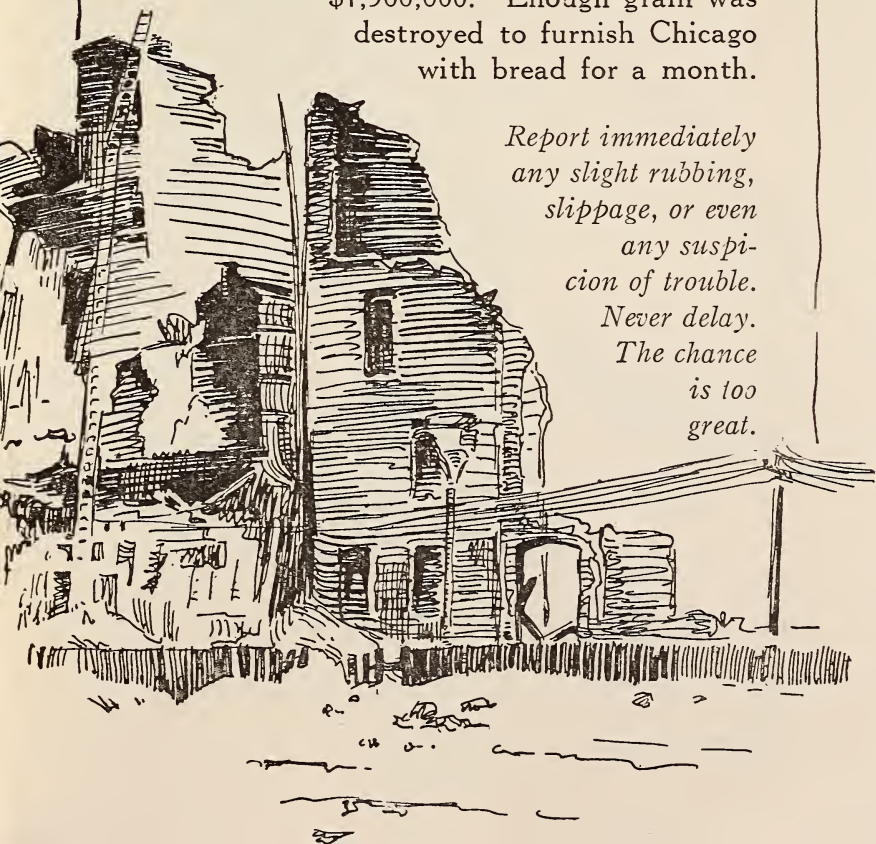 $1,500,000. Enough grain was
destroyed to furnish Chicago
with bread for a month.
Report immediately
any slight rubbing,
slippage, or even
any suspi-
cion of trouble.
Never delay.
The chance
is too
great.